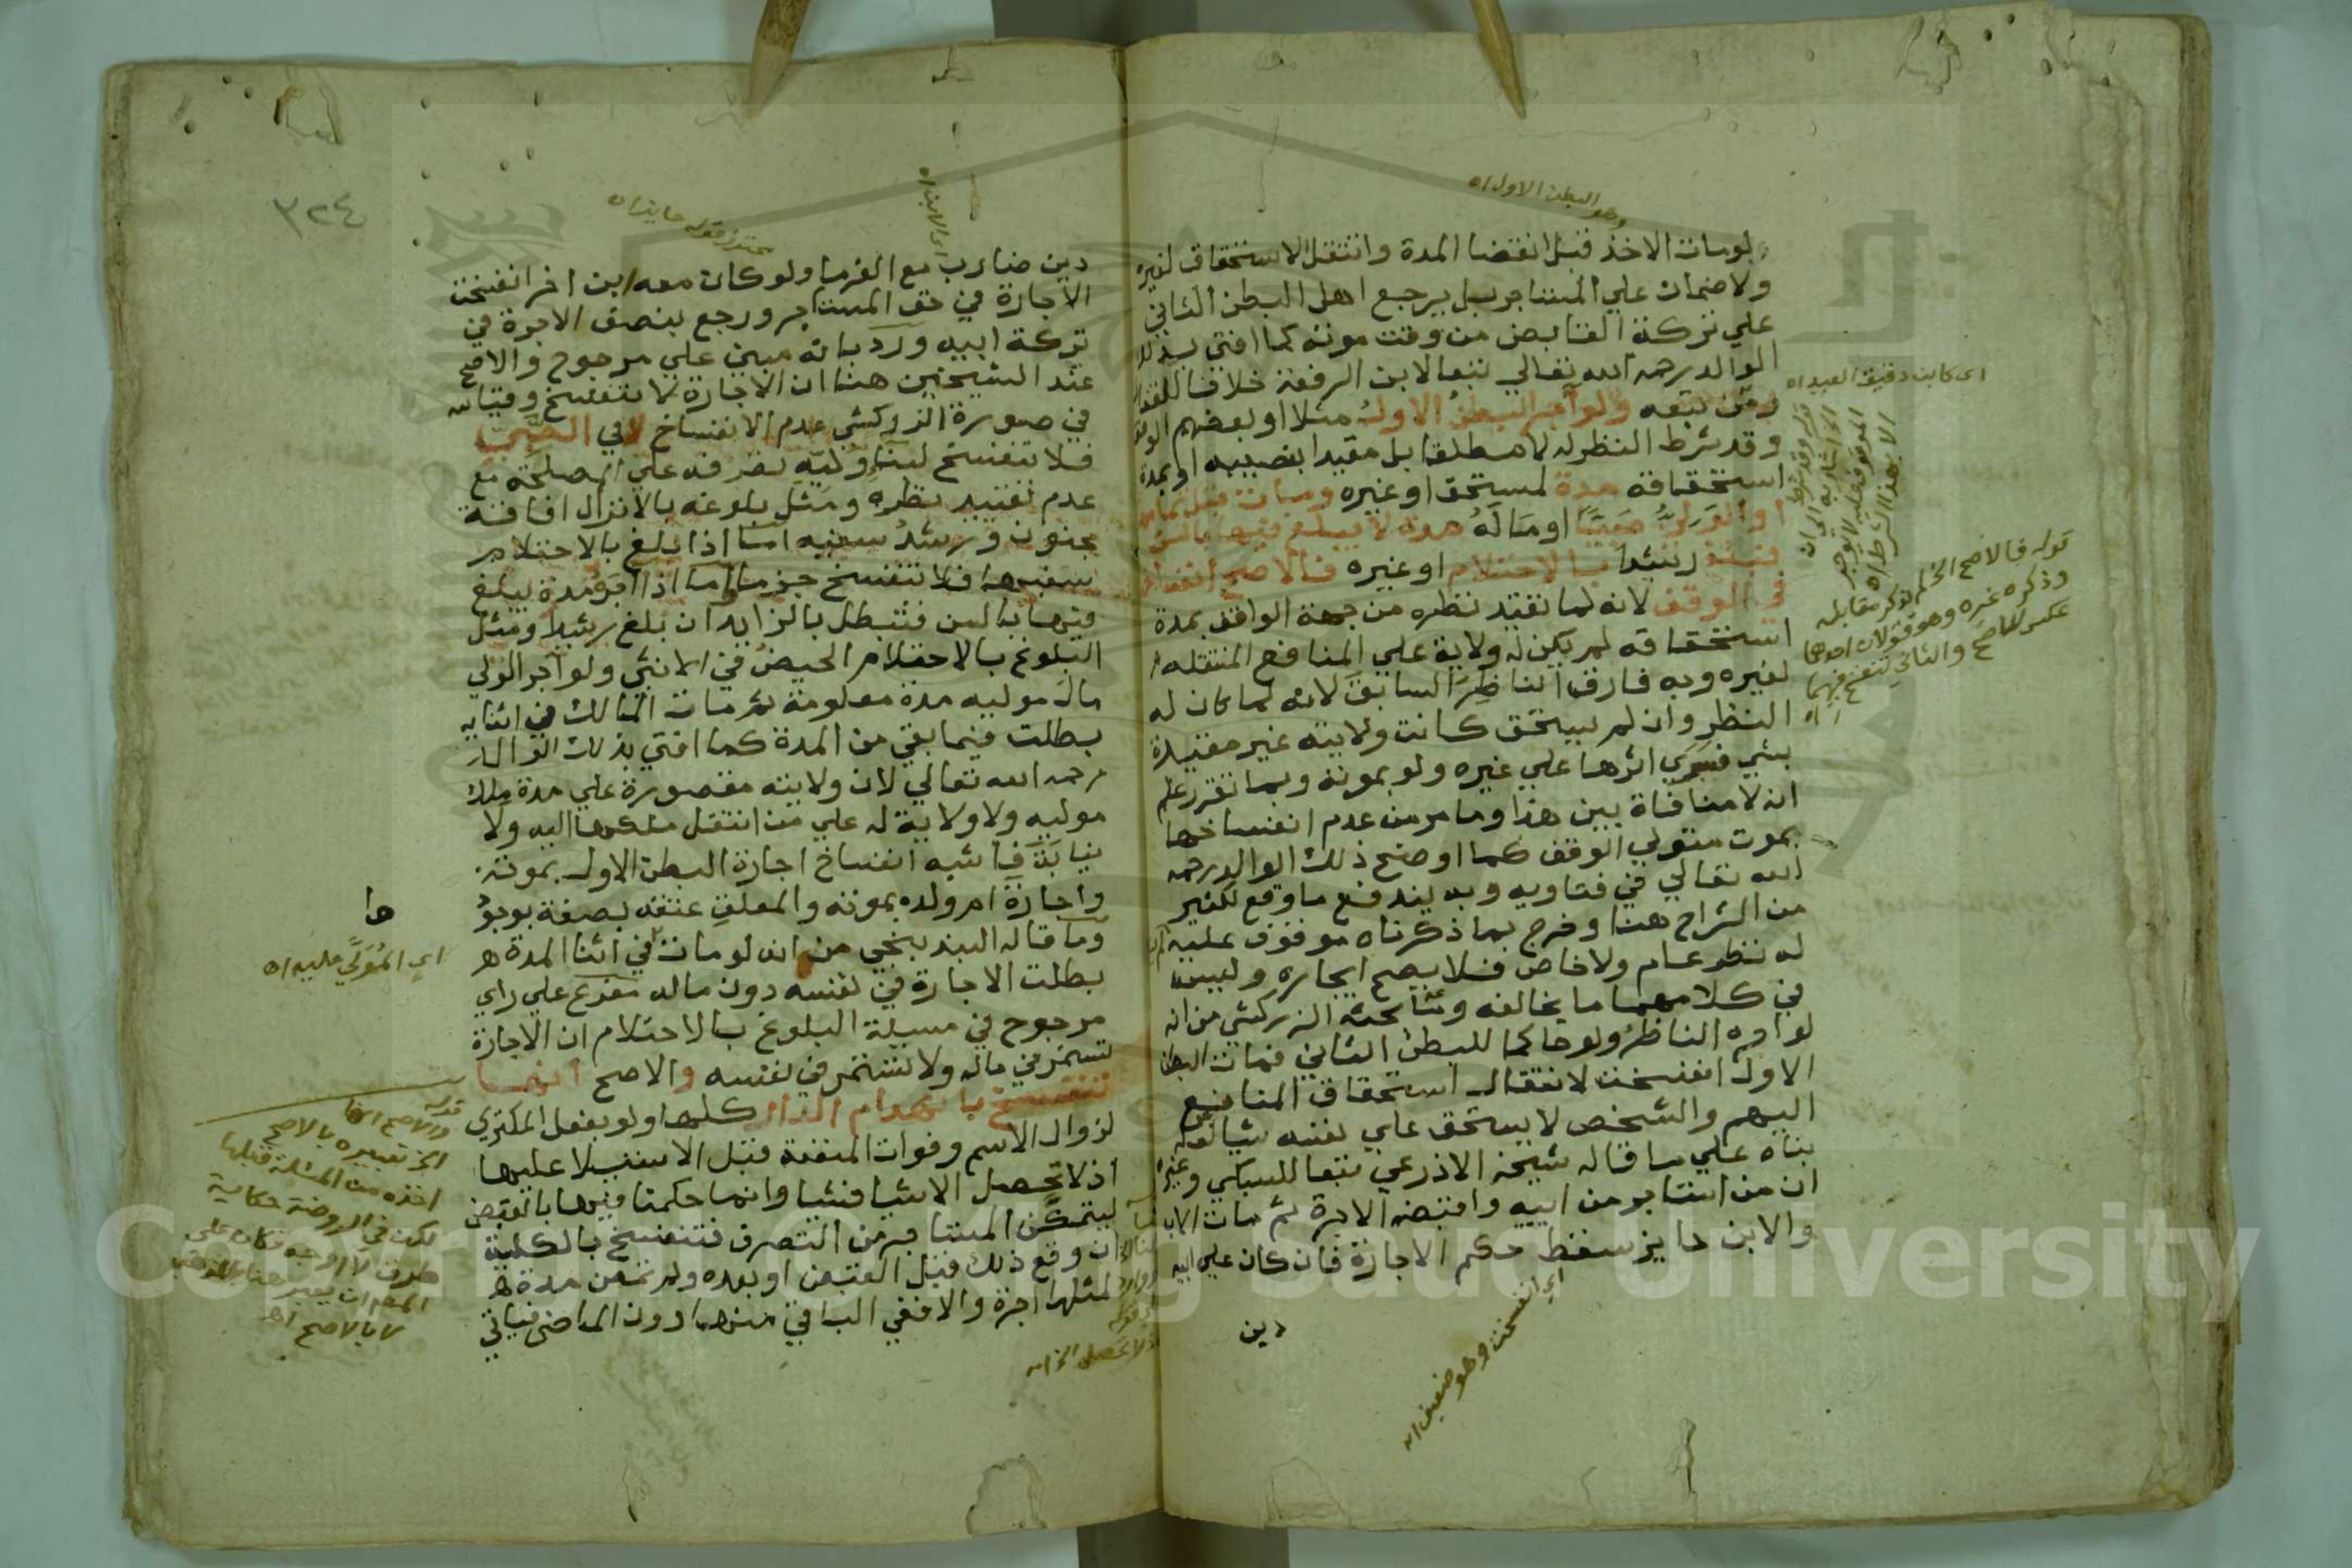 وهو البطن الاول اه
لومات الاخذ قبل انقضا المدة وانتقل الاستحقاق لغيره
ولا ضمان علي المستاجر بل يرجع اهل البطن الثاني
علي تركة القابض من وقت موته كما افتي بذلك
الوالد رحمه الله تعالي تبعا لابن الرفعة خلافا للقفال
ومن تبعه ولو آجر البطن الاول مثلا او بعضهم الوقف
وقد شرط النظر له لا مطلقا بل مقيدا بنصيبه او بمدة
استحقاقه مدة لمستحق او غيره ومات قبل تمامها
او الولي صبيا او ماله مدة لا يبلغ فيها بالسن
فبلغ رشيدا بالاحتلام او غيره فالاصح انفساخها
في الوقف لانه لما تقيد نظره من جهة الواقف بمدة
استحقاقه لم يكن له ولاية علي المنافع المنتقلة
لغيره وبه فارق الناظر السابق لانه لما كان له
النظر وان لم يستحق كانت ولايته غير مقيدة
بشي فسري اثرها علي غيره ولو بموته وبما تقرر علم
انه لا منافاة بين هذا وما مر من عدم انفساخها
بموت متولي الوقف كما اوضح ذلك الوالد رحمه
الله تعالي في فتاويه وبه يندفع ما وقع لكثير
من الشراح هنا وخرج بما ذكرناه موقوف عليه لم
له نظر عام ولا خاص فلا يصح ايجاره وليس
في كلامهما ما يخالفه وما بحثه الزركشي من انه
لو اجره الناظر ولو حاكما للبطن الثاني فمات البطن
الاول انفسخت لانتقال استحقاق المنافع
اليهم والشخص لا يستحق علي نفسه شيا لعله
بناه علي ما قاله شيخه الاذرعي تبعا للسبكي وغيره
ان من استاجر من ابيه واقبضه الاجرة ثم مات الاب
والابن حايز سقط حكم الاجارة فان كان علي ابيه
دين
اي انفسخت وهو ضعيف اه
اي كابن دقيق العيد اه
قوله وقد شرط
الخ اشار به الي ان
الموقوف عليه لا يوجر
الا بهذا الشرط اه
قوله فالاصح الخ لم يذكر مقابله
وذكره غيره وهو قولان احدهما
عكس الاصح والثاني تنفسخ فيهما
اه
٣٢٤
محترز قوله حايز اه
اي الابن اه
دين ضارب مع الغرما ولو كان معه ابن اخر انفسخت
الاجارة في حق المستاجر ورجع بنصف الاجرة في
تركة ابيه ورد بانه مبني علي مرجوح والاصح
عند الشيخين هنا ان الاجارة لا تنفسخ وقياسه
في صورة الزركشي عدم الانفساخ لا في الصبي
فلا تنفسخ لبناء وليه تصرفه علي المصلحة مع
عدم تقييد نظره ومثل بلوغه بالانزال افاقة
مجنون ورشد سفيه اما اذا بلغ بالاحتلام
سفيها فلا تنفسخ جزما اما اذا اجره مدة يبلغ
فيها بالسن فتبطل بالزايد ان بلغ رشيدا ومثل
البلوغ بالاحتلام الحيض في الانثي ولو آجر الولي
مال موليه مدة معلومة ثم مات المالك في اثنايه
بطلت فيما بقي من المدة كما افتي بذلك الوالد
رحمه الله تعالي لان ولايته مقصورة علي مدة ملك
موليه ولا ولاية له علي من انتقل ملكها اليه ولا
نيابة فاشبه انفساخ اجارة البطن الاول بموته
واجارة ام ولده بموته والمعلق عتقه بصفة بوجود
وما قاله البندنيجي من انه لو مات في اثنا المدة
بطلت الاجارة في نفسه دون ماله مفرع علي راي
مرجوح في مسيلة البلوغ بالاحتلام ان الاجارة
تستمر في ماله ولا تستمر في نفسه والاصح انها
تنفسخ بانهدام الدار كلها ولو بفعل المكتري
لزوال الاسم وفوات المنفعة قبل الاستيلا عليها
اذ لا تحصل الا شيا فشيا وانما حكمنا فيها بالقبض
ليتمكن المستاجر من التصرف فتنفسخ بالكلية
ان وقع ذلك قبل القبض او بعده ولم تمض مدة
لمثلها اجرة والا ففي الباقي منها دون الماضي فياتي
ها
اي المولي عليه اه
قوله
والاصح انها
الخ تعبيره بالاصح
اخذه من المسئلة قبلها
لكن في الروضة حكاية
طرق لا اوجه فكان علي
المص ان يعبر هنا بالمذهب
لا بالاصح اه
اذ لا تحصل الخ اه
Copyright © King Saud University